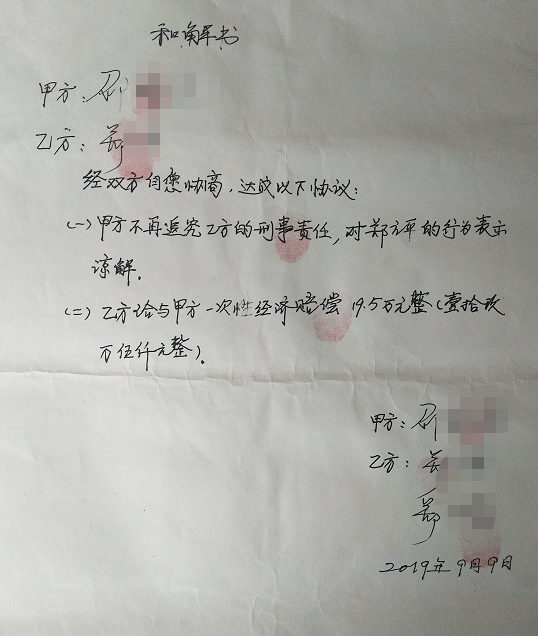 和解书
甲方:
乙方:
经双方自愿协商,达成以下协议:
(一)甲方不再追究乙方的刑事责任,对郑方平的行为表示
谅解。
(二)乙方给与甲方一次性经济赔偿19.5万元整(壹拾玖
万伍仟元整)。
甲方:
乙方:
2019年9月9日